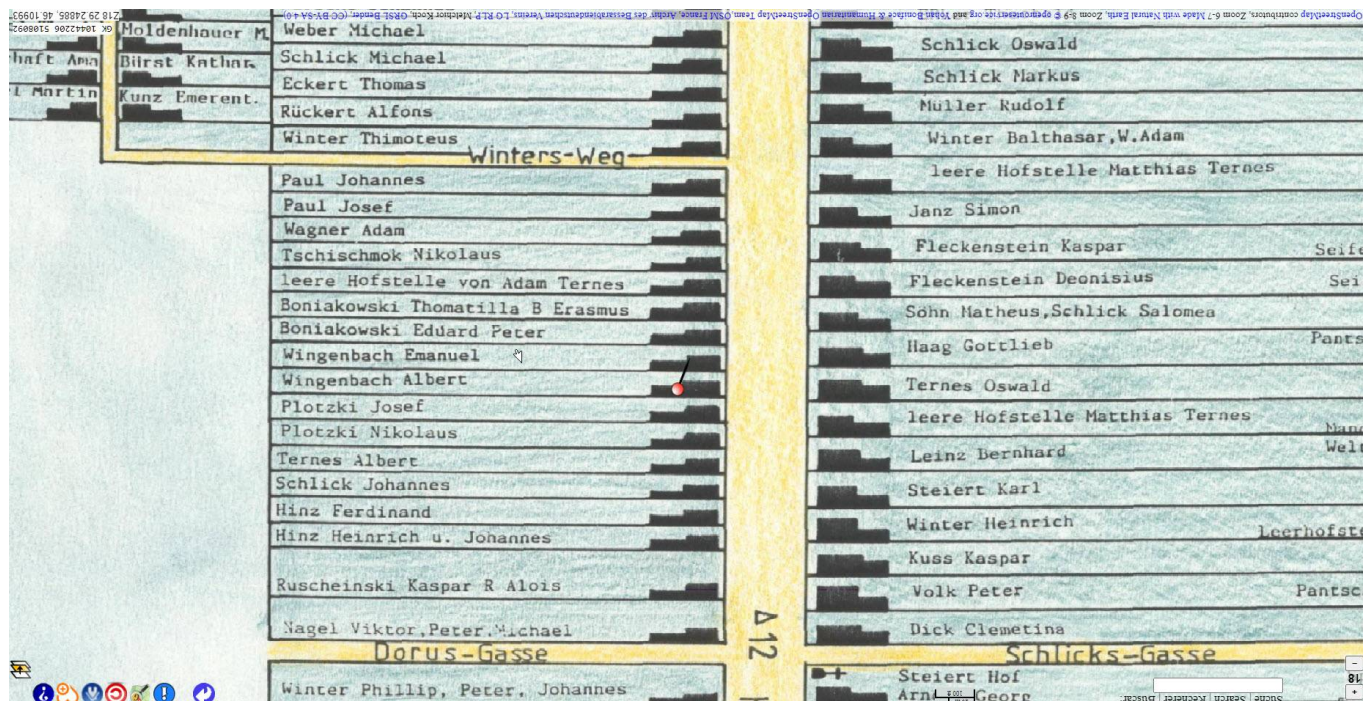 OpenStreetMap contributors, Zoom 6-7 Made with Natural Earth, Zoom 8-9 © openrouteservice.org and Yohan Boniface & Humanitarian OpenStreetMap Team, OSM France, Archiv des Bessarabiendeutschen Vereins, LO RLP Melchior Koch, GRSL Bender, (CC BY-SA 4.0)
Z18 29.24885, 46.10993
Moldenhauer M
haft Ama
Bilrst Kathar.
Martin
Kunz Emerent.
Weber Michael
Schlick Michael
Eckert Thomas
Rückert Alfons
Winter Thimoteus
Winters-Weg
Paul Johannes
Paul Josef
Wagner Adam
Tschischmok Nikolaus
leere Hofstelle von Adam Ternes
Boniakowski Thomatilla B Erasmus
Boniakowski Eduard Peter
Wingenbach Emanuel
Wingenbach Albert
Plotzki Josef
Plotzki Nikolaus
Ternes Albert
Schlick Johannes
Hinz Ferdinand
Hinz Heinrich u. Johannes
Ruscheinski Kaspar R Alois
Nagel Viktor,Peter.Michael
Dorus-Gasse
Winter Phillip, Peter, Johannes
A 12
Schlick Oswald
Schlick Markus
Müller Rudolf
Winter Balthasar,W.Adam
leere Hofstelle Matthias Ternes
Janz Simon
Fleckenstein Kaspar
Seife
Fleckenstein Deonisius
Sei
Söhn Matheus,Schlick Salomea
Haag Gottlieb
Pants
Ternes Oswald
leere Hofstelle Matthias Ternes
Leinz Bernhard
Welt
Steiert Karl
Winter Heinrich
Leerhofste
Kuss Kaspar
Volk Peter
Pantsc
Dick Clemetina
Schlicks-Gasse
Steiert Hof
Georg
18
Suche | Search | Rechercher | Buscar: